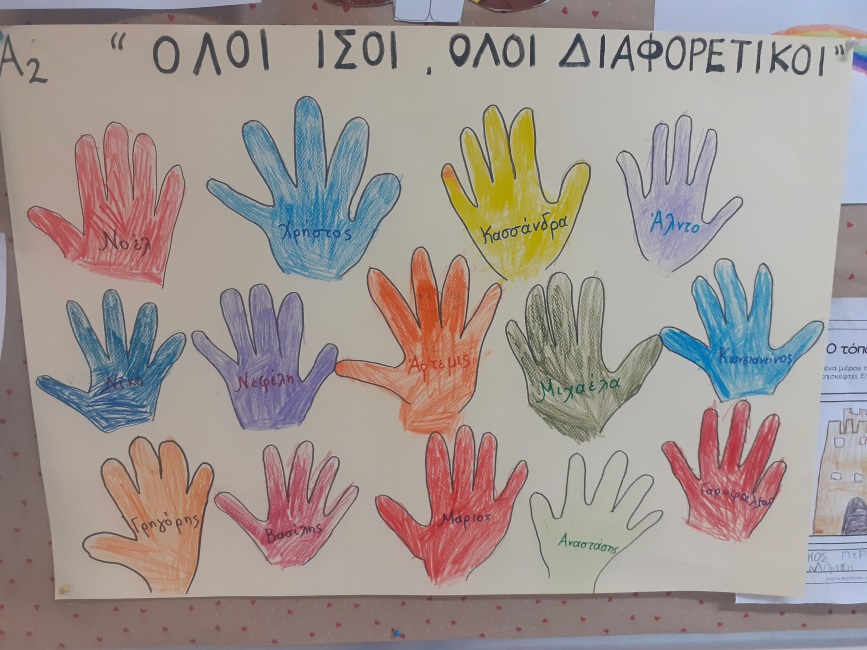 Α2 "ΟΛΟΙ ΙΣΟΙ, ΟΛΟΙ ΔΙΑΦΟΡΕΤΙΚΟΙ"
Νοέλ
Χρήστος
Κασσάνδρα
Άλντο
Νεφέλη
Άρτεμις
Μιχαέλα
Κωνσταντίνος
Γρηγόρης
Βασίλης
Μάριος
Αναστάσης
Ο τόπο
ένα μέρος τ
ΚΟΣ ΠΥΡ